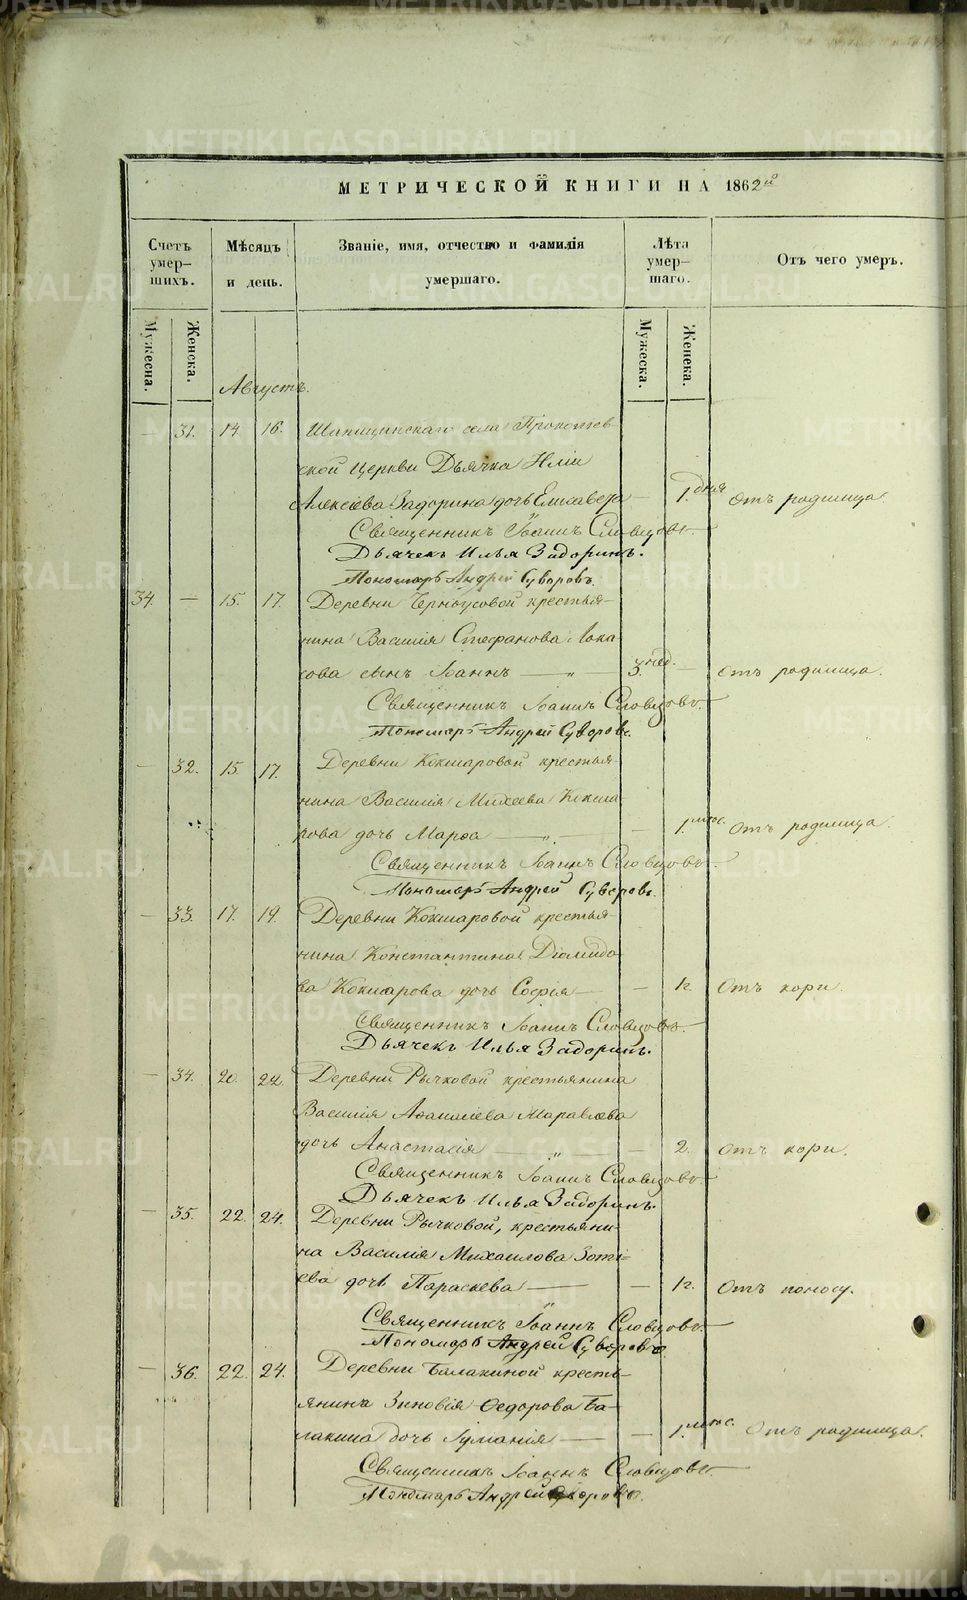 МЕТРИЧЕСКОЙ КНИГИ НА 1862й
Счетъ умер-шихъ.
Мѣсяцъ и день.
Званіе, имя, отчество и фамилія умершаго.
Лѣта умер-шаго.
Отъ чего умеръ.
Мужеска. Женска. Мужеска. Женска.
Августъ.
— 31. 14. 16. Шаницинскаго села Прокопіев-
ской Церкви Дьячка Иліи
Алексіева Задорина дочь Елисавета — 1 дня Отъ родимца
Священникъ Іоаннъ Словцовъ.
Дьячекъ Илья Задоринъ.
Пономарь Андрей Суворовъ.
34. — 15. 17. Деревни Черноусовой крестья-
нина Василія Стефанова Лока-
сова сынъ Іоаннъ — „ — 3 нед. — отъ родимца.
Священникъ Іоаннъ Словцовъ.
Пономарь Андрей Суворовъ.
— 32. 15. 17. Деревни Кокшаровой крестья-
нина Василія Михеева Кокша-
рова дочь Марѳа — „ — — 1. мѣс. Отъ родимца.
Священникъ Іоаннъ Словцовъ.
Пономарь Андрей Суворовъ.
— 33. 17. 19. Деревни Кокшаровой крестья-
нина Константина Діомидо-
ва Кокшарова дочь Софія — — 1г. Отъ кори.
Священникъ Іоаннъ Словцовъ.
Дьячекъ Илья Задоринъ.
— 34. 20. 22. Деревни Рычковой крестьянина
Василія Аѳанасіева Маравлева
дочь Анастасія — „ — — 2. Отъ кори.
Священникъ Іоаннъ Словцовъ.
Дьячекъ Илья Задоринъ.
— 35. 22. 24. Деревни Рычковой, крестьяни-
на Василія Михаилова Зоті-
ева дочь Параскева — — 1г. Отъ поносу.
Священникъ Іоаннъ Словцовъ.
Пономарь Андрей Суворовъ.
— 36. 22. 24. Деревни Балакиной кресть-
янина Зиновія Ѳедорова Ба-
лакина дочь Іуліанія — — 1. мѣс. Отъ родимца.
Священникъ Іоаннъ Словцовъ.
Пономарь Андрей Суворовъ.
METRIKI.GASO-URAL.RU